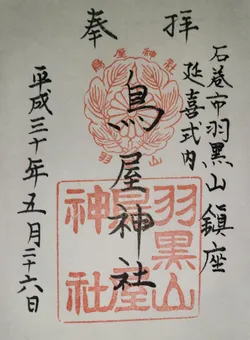 奉拝
石巻市羽黒山鎮座
延喜式内
鳥屋神社
平成三十年五月二十六日
鳥屋神社
羽黒山
鳥屋
神社